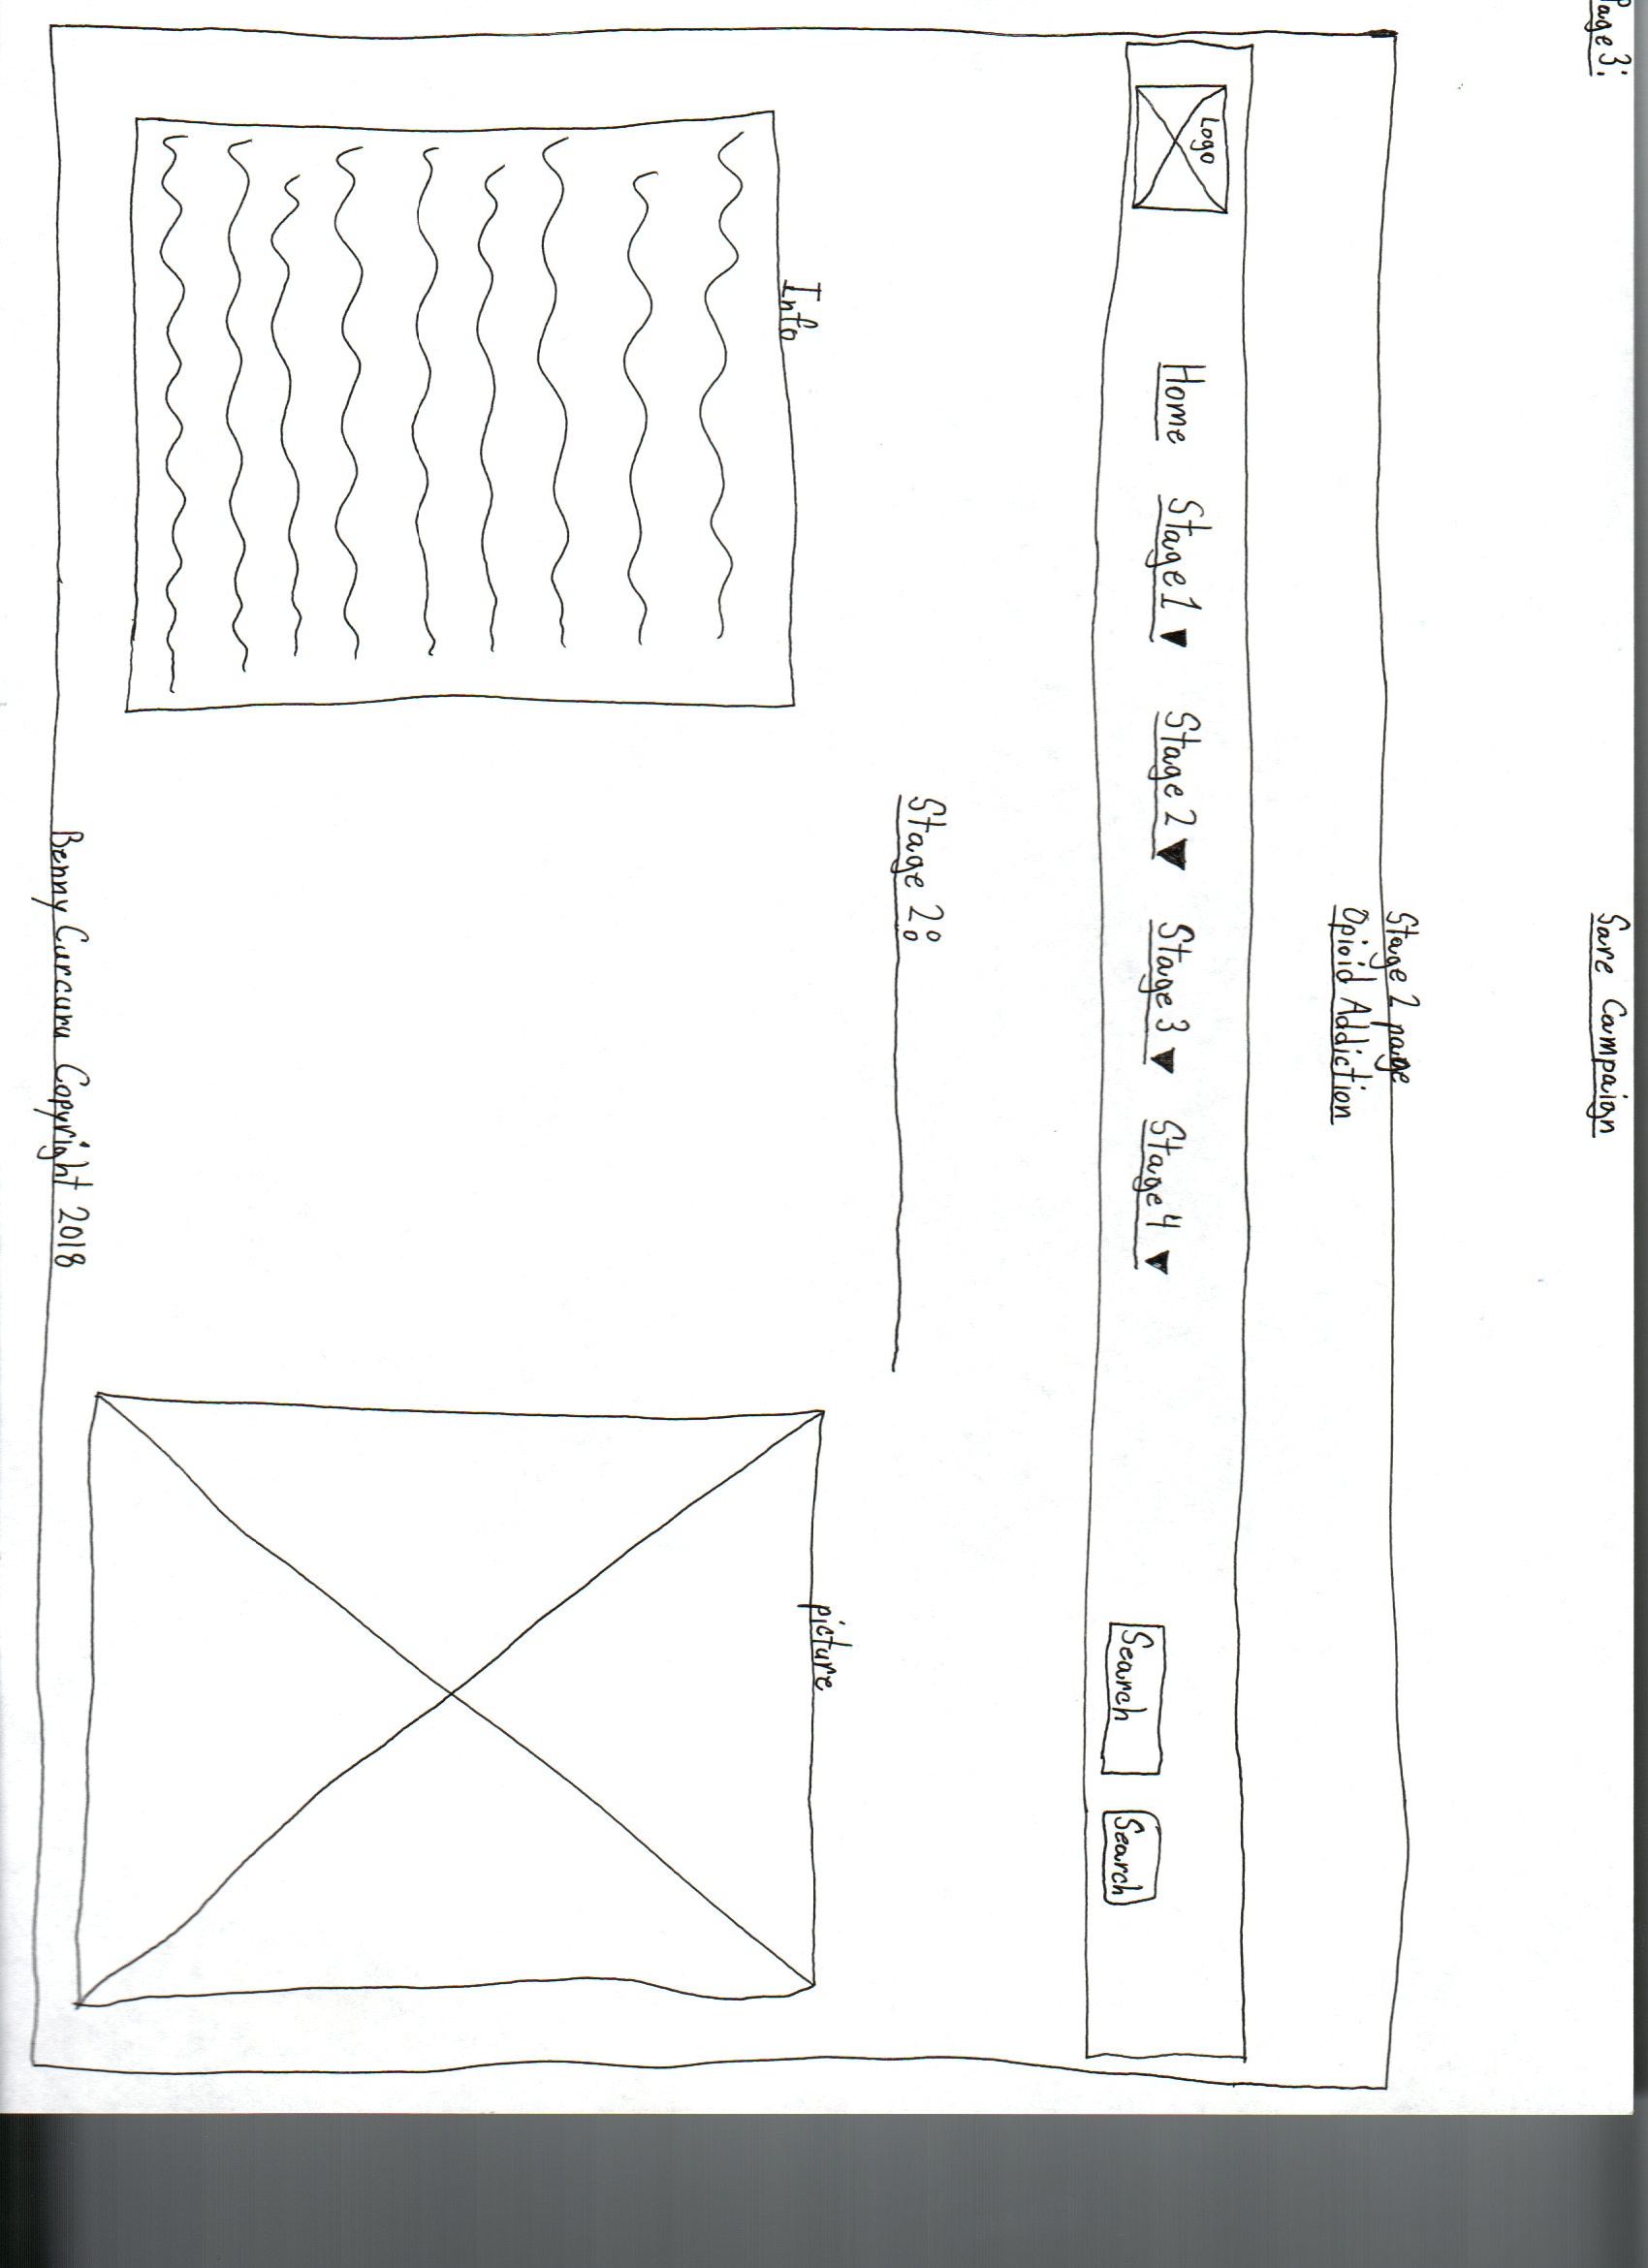 Page 3:
Save Campaign
Stage 2 page
Opioid Addiction
Logo
Home Stage 1 Stage 2 Stage 3 Stage 4 Search Search
Stage 2:
Info
picture
Benny Curcuru Copyright 2018